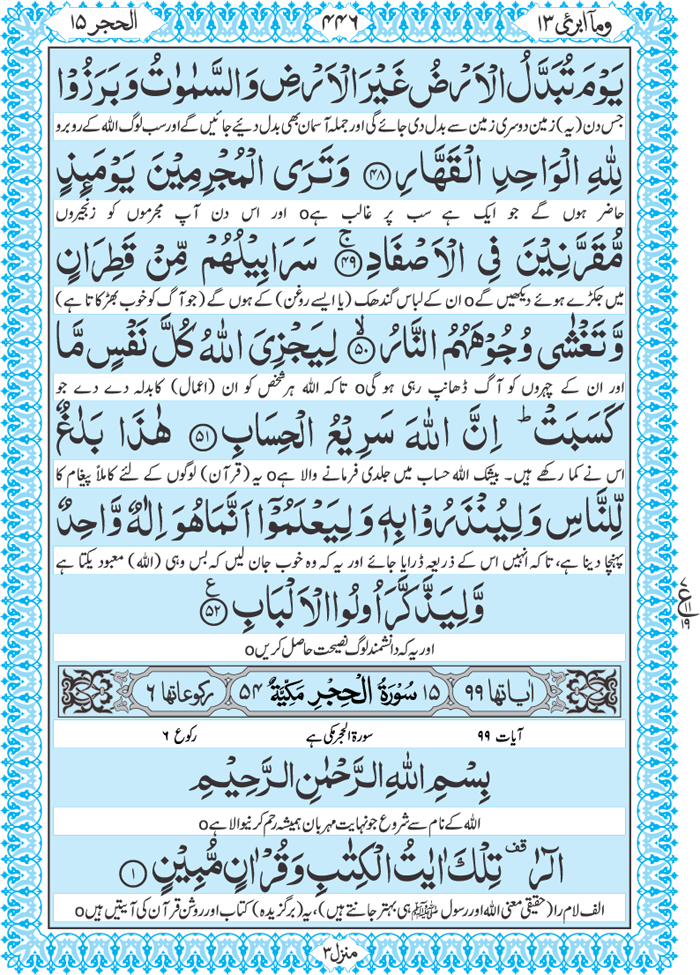 وماۤ ابرئ ١٣ ٤٤٦ الحجر ١٥
يَوْمَ تُبَدَّلُ الْاَرْضُ غَيْرَ الْاَرْضِ وَالسَّمٰوٰتُ وَبَرَزُوْا
جس دن (یہ) زمین دوسری زمین سے بدل دی جائے گی اور جملہ آسمان بھی بدل دیئے جائیں گے اور سب لوگ اللہ کے روبرو
لِلّٰهِ الْوَاحِدِ الْقَهَّارِ ﴿۴۸﴾ وَتَرَى الْمُجْرِمِيْنَ يَوْمَىِٕذٍ
حاضر ہوں گے جو ایک ہے سب پر غالب ہے o اور اس دن آپ مجرموں کو زنجیروں
مُّقَرَّنِيْنَ فِى الْاَصْفَادِ ۚ﴿۴۹﴾ سَرَابِيْلُهُمْ مِّنْ قَطِرَانٍ
میں جکڑے ہوئے دیکھیں گے o ان کے لباس گندھک (یا ایسے روغن) کے ہوں گے (جو آگ کو خوب بھڑکاتا ہے)
وَّتَغْشٰى وُجُوْهَهُمُ النَّارُ ۙ﴿۵۰﴾ لِيَجْزِىَ اللّٰهُ كُلَّ نَفْسٍ مَّا
اور ان کے چہروں کو آگ ڈھانپ رہی ہو گی o تاکہ اللہ ہر شخص کو ان (اعمال) کا بدلہ دے دے جو
كَسَبَتْ ؕ اِنَّ اللّٰهَ سَرِيْعُ الْحِسَابِ ﴿۵۱﴾ هٰذَا بَلٰغٌ
اس نے کما رکھے ہیں۔ بیشک اللہ حساب میں جلدی فرمانے والا ہے o یہ (قرآن) لوگوں کے لئے کاملاً پیغام کا
لِّلنَّاسِ وَلِيُنْذَرُوْا بِهٖ وَلِيَعْلَمُوْۤا اَنَّمَا هُوَ اِلٰهٌ وَّاحِدٌ
پہنچا دینا ہے، تاکہ انہیں اس کے ذریعہ ڈرایا جائے اور یہ کہ وہ خوب جان لیں کہ بس وہی (اللہ) معبود یکتا ہے
وَّلِيَذَّكَّرَ اُولُوا الْاَلْبَابِ ﴿۵۲﴾ ع
اور یہ کہ دانشمند لوگ نصیحت حاصل کریں o
ع ۷ ۱۱ ۱۹
اٰیاتها ۹۹ ۱۵ سُوْرَةُ الْحِجْرِ مَكِّيَّةٌ ۵۴ رکوعاتها ۶
آیات ۹۹ سورۃ الحجر مکی ہے رکوع ۶
بِسْمِ اللّٰهِ الرَّحْمٰنِ الرَّحِيْمِ
اللہ کے نام سے شروع جو نہایت مہربان ہمیشہ رحم کرنیوالا ہے o
الٓرٰ قف تِلْكَ اٰيٰتُ الْكِتٰبِ وَقُرْاٰنٍ مُّبِيْنٍ ﴿۱﴾
الف لام را (حقیقی معنی اللہ اور رسول ﷺ ہی بہتر جانتے ہیں)، یہ (برگزیدہ) کتاب اور روشن قرآن کی آیتیں ہیں o
منزل ۳